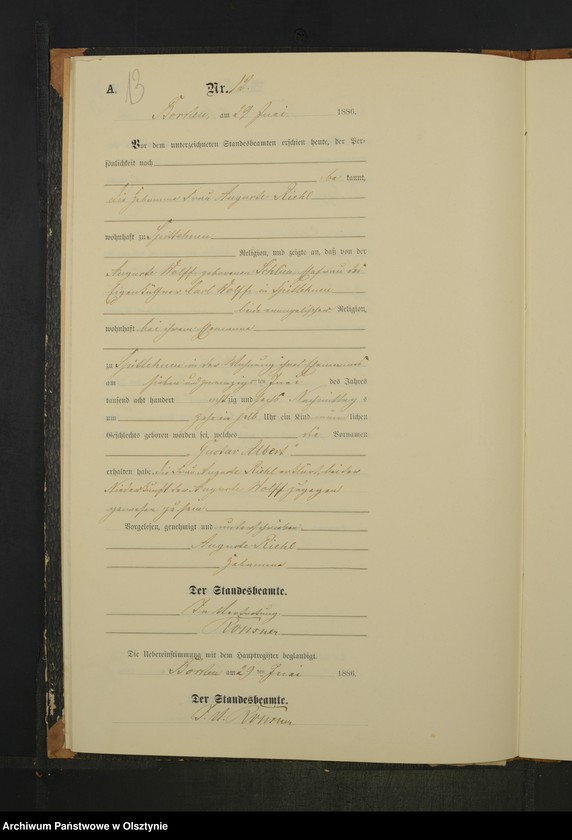 A. 13
Nr. 13.
am 29 Juni 1886.
Vor dem unterzeichneten Standesbeamten erschien heute, der Per-
sönlichkeit nach
be kannt,
die Hebamme Frau Auguste Riehl
wohnhaft zu
Religion, und zeigte an, daß von der
Auguste Wolff geborenen Ehefrau des
Carl Wolff in
beide evangelischer Religion,
wohnhaft bei ihrem Ehemanne
zu in der Wohnung ihres Ehemannes
am sieben und zwanzigsten Juni des Jahres
tausend acht hundert achtzig und sechs Nachmittags
um halb Uhr ein Kind männlichen
Geschlechts geboren worden sei, welches die Vornamen
Gustav Albert
erhalten habe. Die Frau Auguste Riehl erklärt, bei der
Niederkunft der Auguste Wolff zugegen
gewesen zu sein.
Vorgelesen, genehmigt und unterschrieben
Auguste Riehl
Hebamme
Der Standesbeamte.
In Vertretung
Die Uebereinstimmung mit dem Hauptregister beglaubigt.
am 29 ten Juni 1886.
Der Standesbeamte.
I. V.
Archiwum Państwowe w Olsztynie